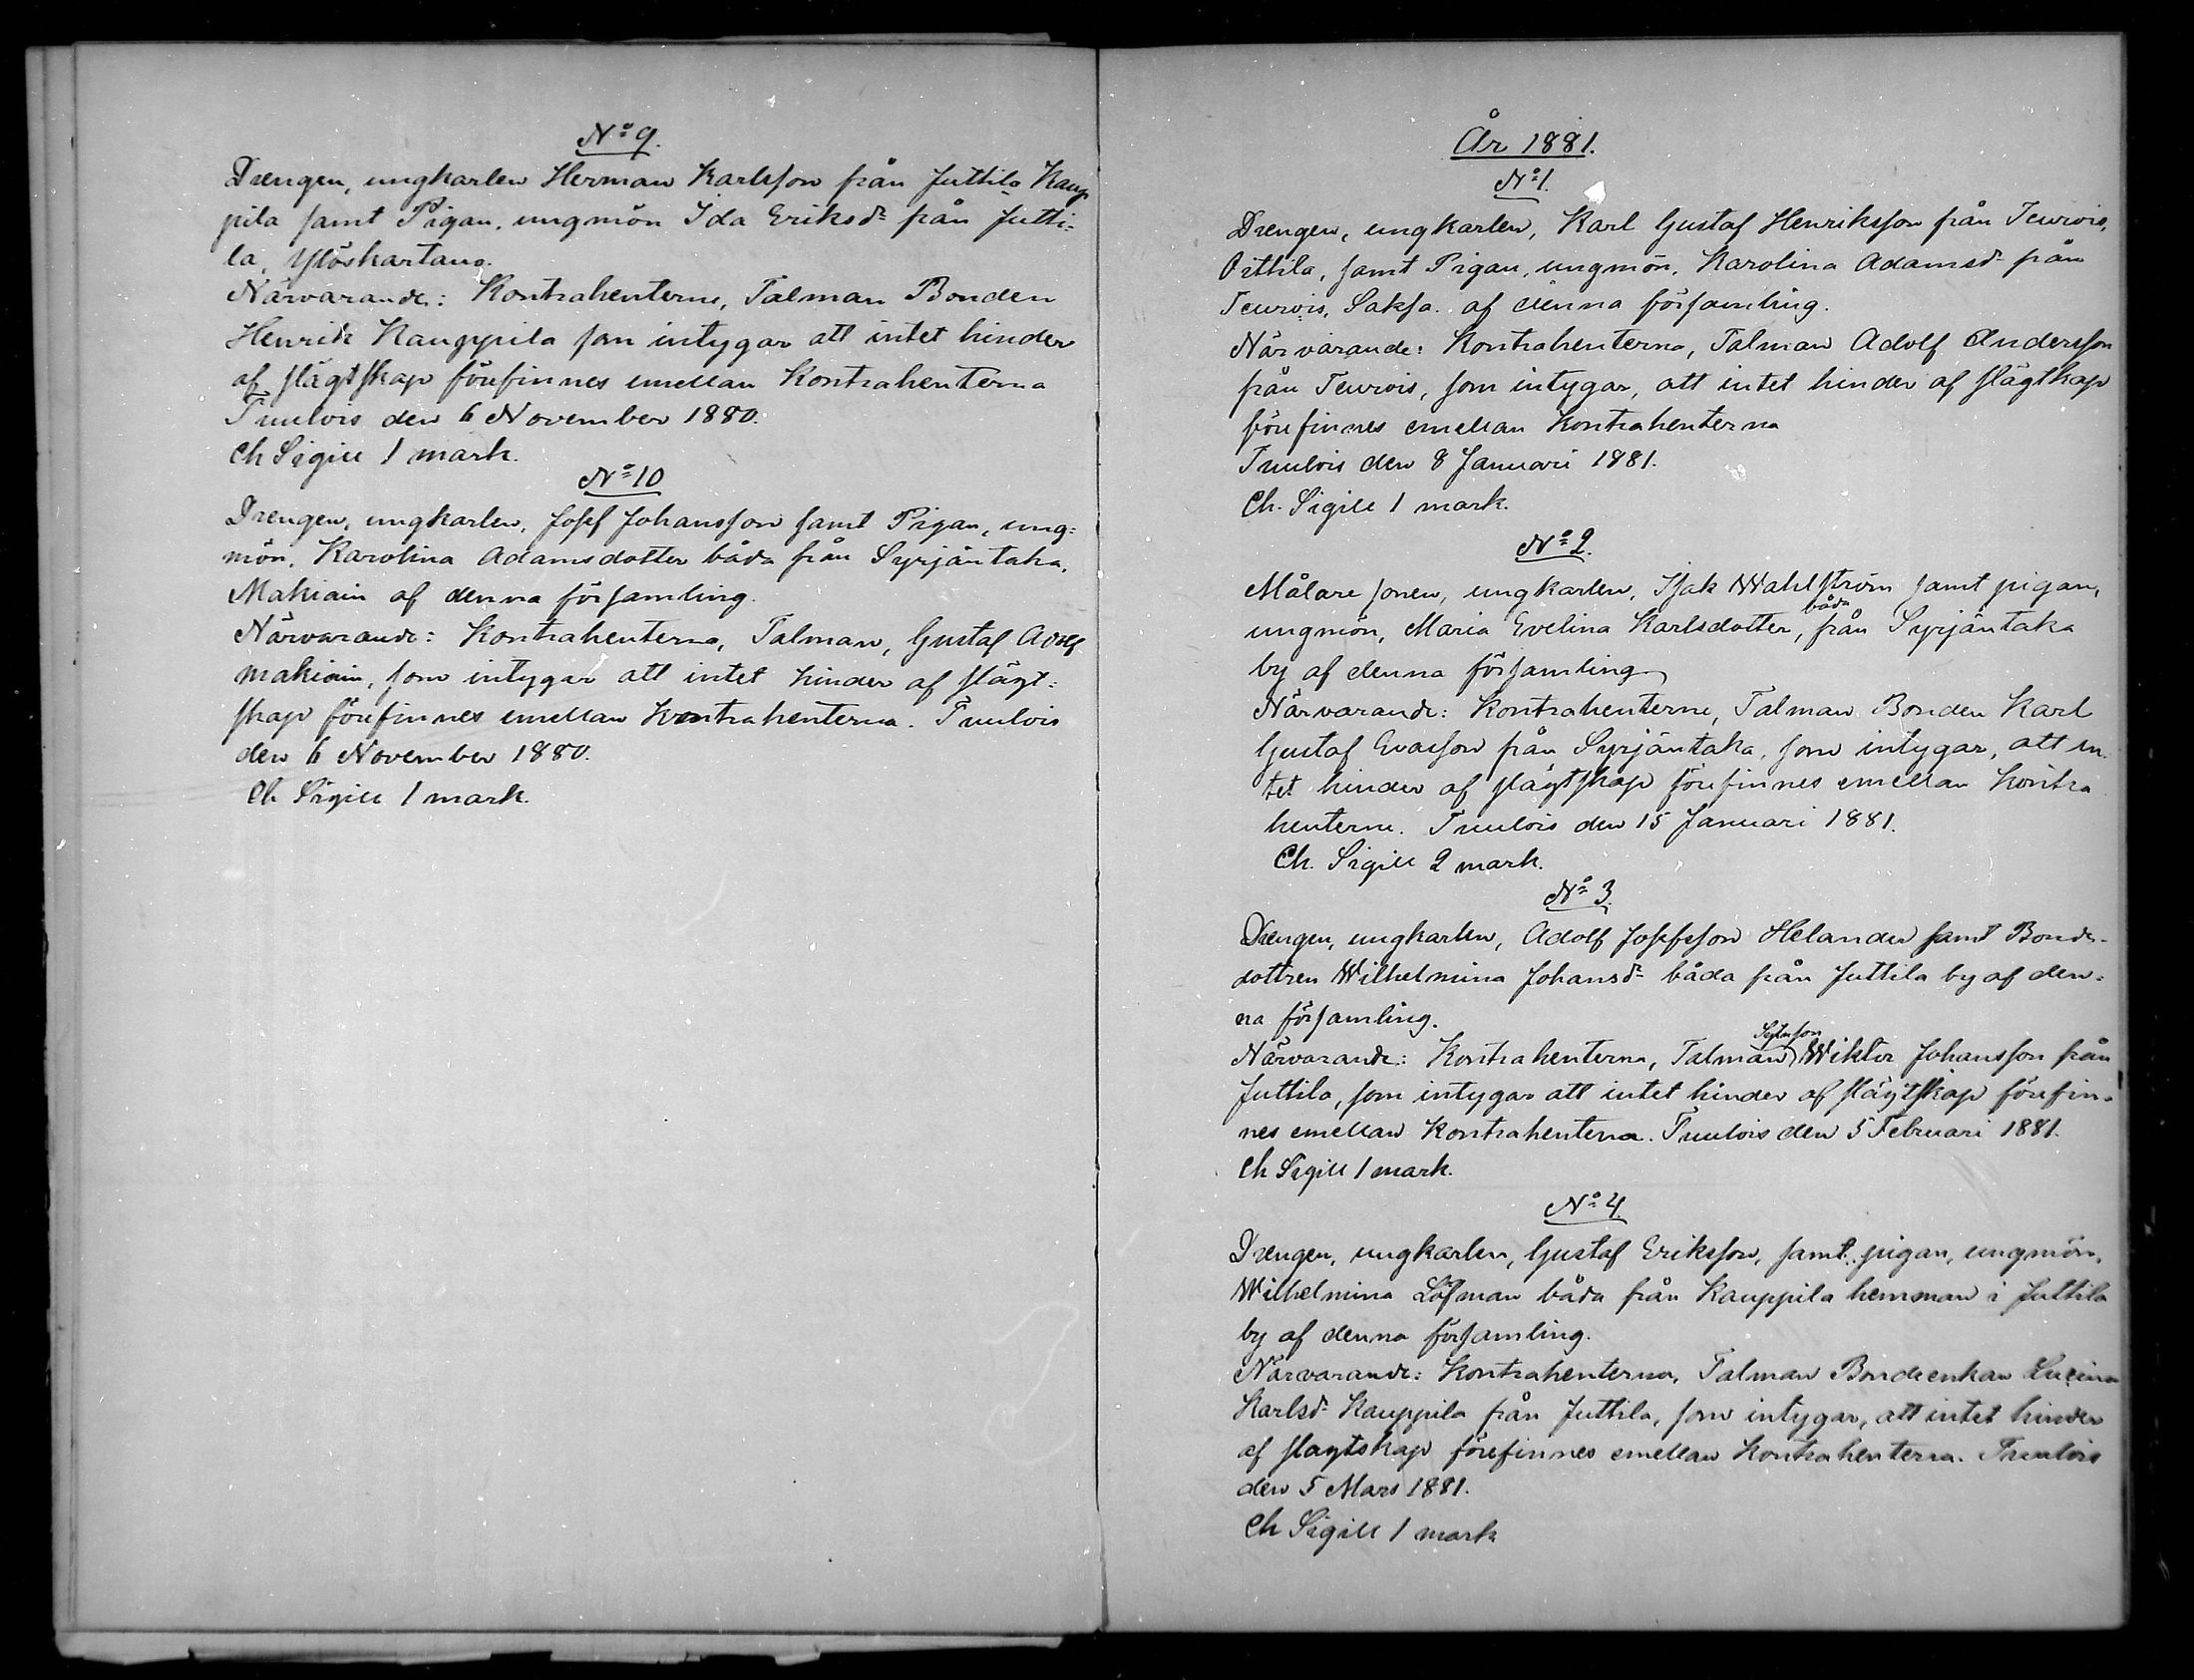 No 9.
Drengen, ungkarlen Herman Karlsson från Juttila Kaup
pila samt Pigan, ungmön Ida Eriksdr från Jutti-
la, Ylöskartano.
Närvarande: Kontrahenterne, Talman Bonden
Henrik Kauppila som intygar att intet hinder
af slägtskap förefinnes emellan Kontrahenterna
Tuulois den 6 November 1880.
Ch Sigill 1 mark.
No 10
Drengen, ungkarlen, Josef Johansson samt Pigan, ung-
mön, Karolina Adamsdotter båda från Syrjäntaka,
Makiain af denna församling.
Närvarande: Kontrahenterna, Talman, Gustaf Adolf
Makiain, som intygar att intet hinder af slägt-
skap förefinnes emellan Kontrahenterna. Tuulois
den 6 November 1880.
Ch Sigill 1 mark.
År 1881.
No 1.
Drengen, ungkarlen, Karl Gustaf Henriksson från Teurois,
Oittila, samt Pigan, ungmön, Karolina Adamsdr från
Teurois, Saksa. af denna församling.
Närvarande: Kontrahenterna, Talman Adolf Andersson
från Teurois, som intygar, att intet hinder af slägtkap
förefinnes emellan Kontrahenterna
Tuulois den 8 Januari 1881.
Ch. Sigill 1 mark.
No 2.
Målare sonen, ungkarlen, Isak Wahlström samt pigan,
ungmön, Maria Evelina Karlsdotter, båda från Syrjäntaka
by af denna församling
Närvarande: Kontrahenterne, Talman Bonden Karl
Gustaf Evasson från Syrjäntaka, som intygar, att in
tet hinder af slägtskap förefinnes emellan Kontra
henterne. Tuulois den 15 Januari 1881.
Ch. Sigill 2 mark.
No 3.
Drengen, ungkarlen, Adolf Josefsson Helander samt Bonde-
dottren Wilhelmina Johansdr båda från Juttila by af den-
na församling.
Närvarande: Kontrahenterna, Talman Wiktor Johansson från
Juttila, som intygar att intet hinder af slägtskap förefin-
nes emellan Kontrahenterna. Tuulois den 5 Februari 1881.
Ch Sigill 1 mark.
No 4.
Drengen, ungkarlen, Gustaf Eriksson, samt pigan, ungmön,
Wilhelmina Löfman båda från Kauppila hemman i Juttila
by af denna församling.
Närvarande: Kontrahenterna, Talman Bondeenkan Lucina
Karlsdr Kauppila från Juttila, som intygar, att intet hinder
af slagtskap förefinnes emellan Kontrahenterna. Tuulois
den 5 Mars 1881.
Ch Sigill 1 mark